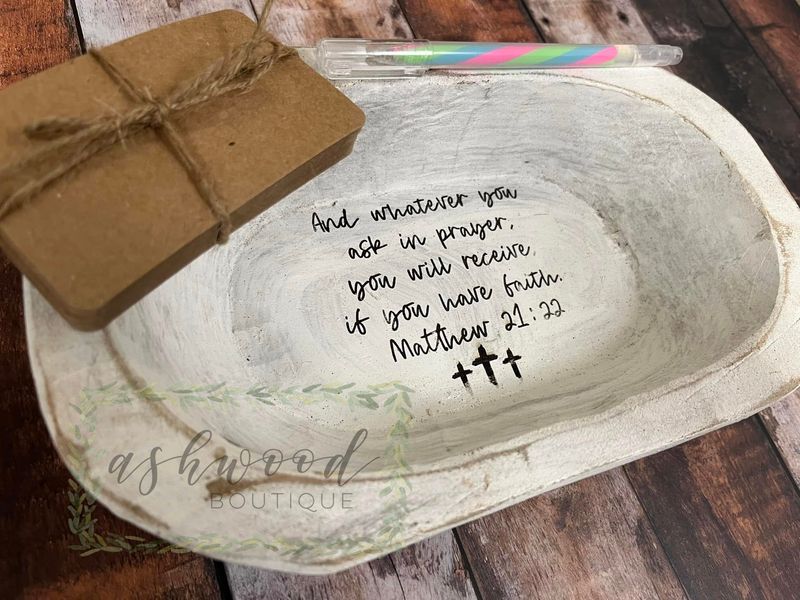 And whatever you
ask in prayer,
you will receive,
if you have faith.
Matthew 21:22
ashwood
BOUTIQUE